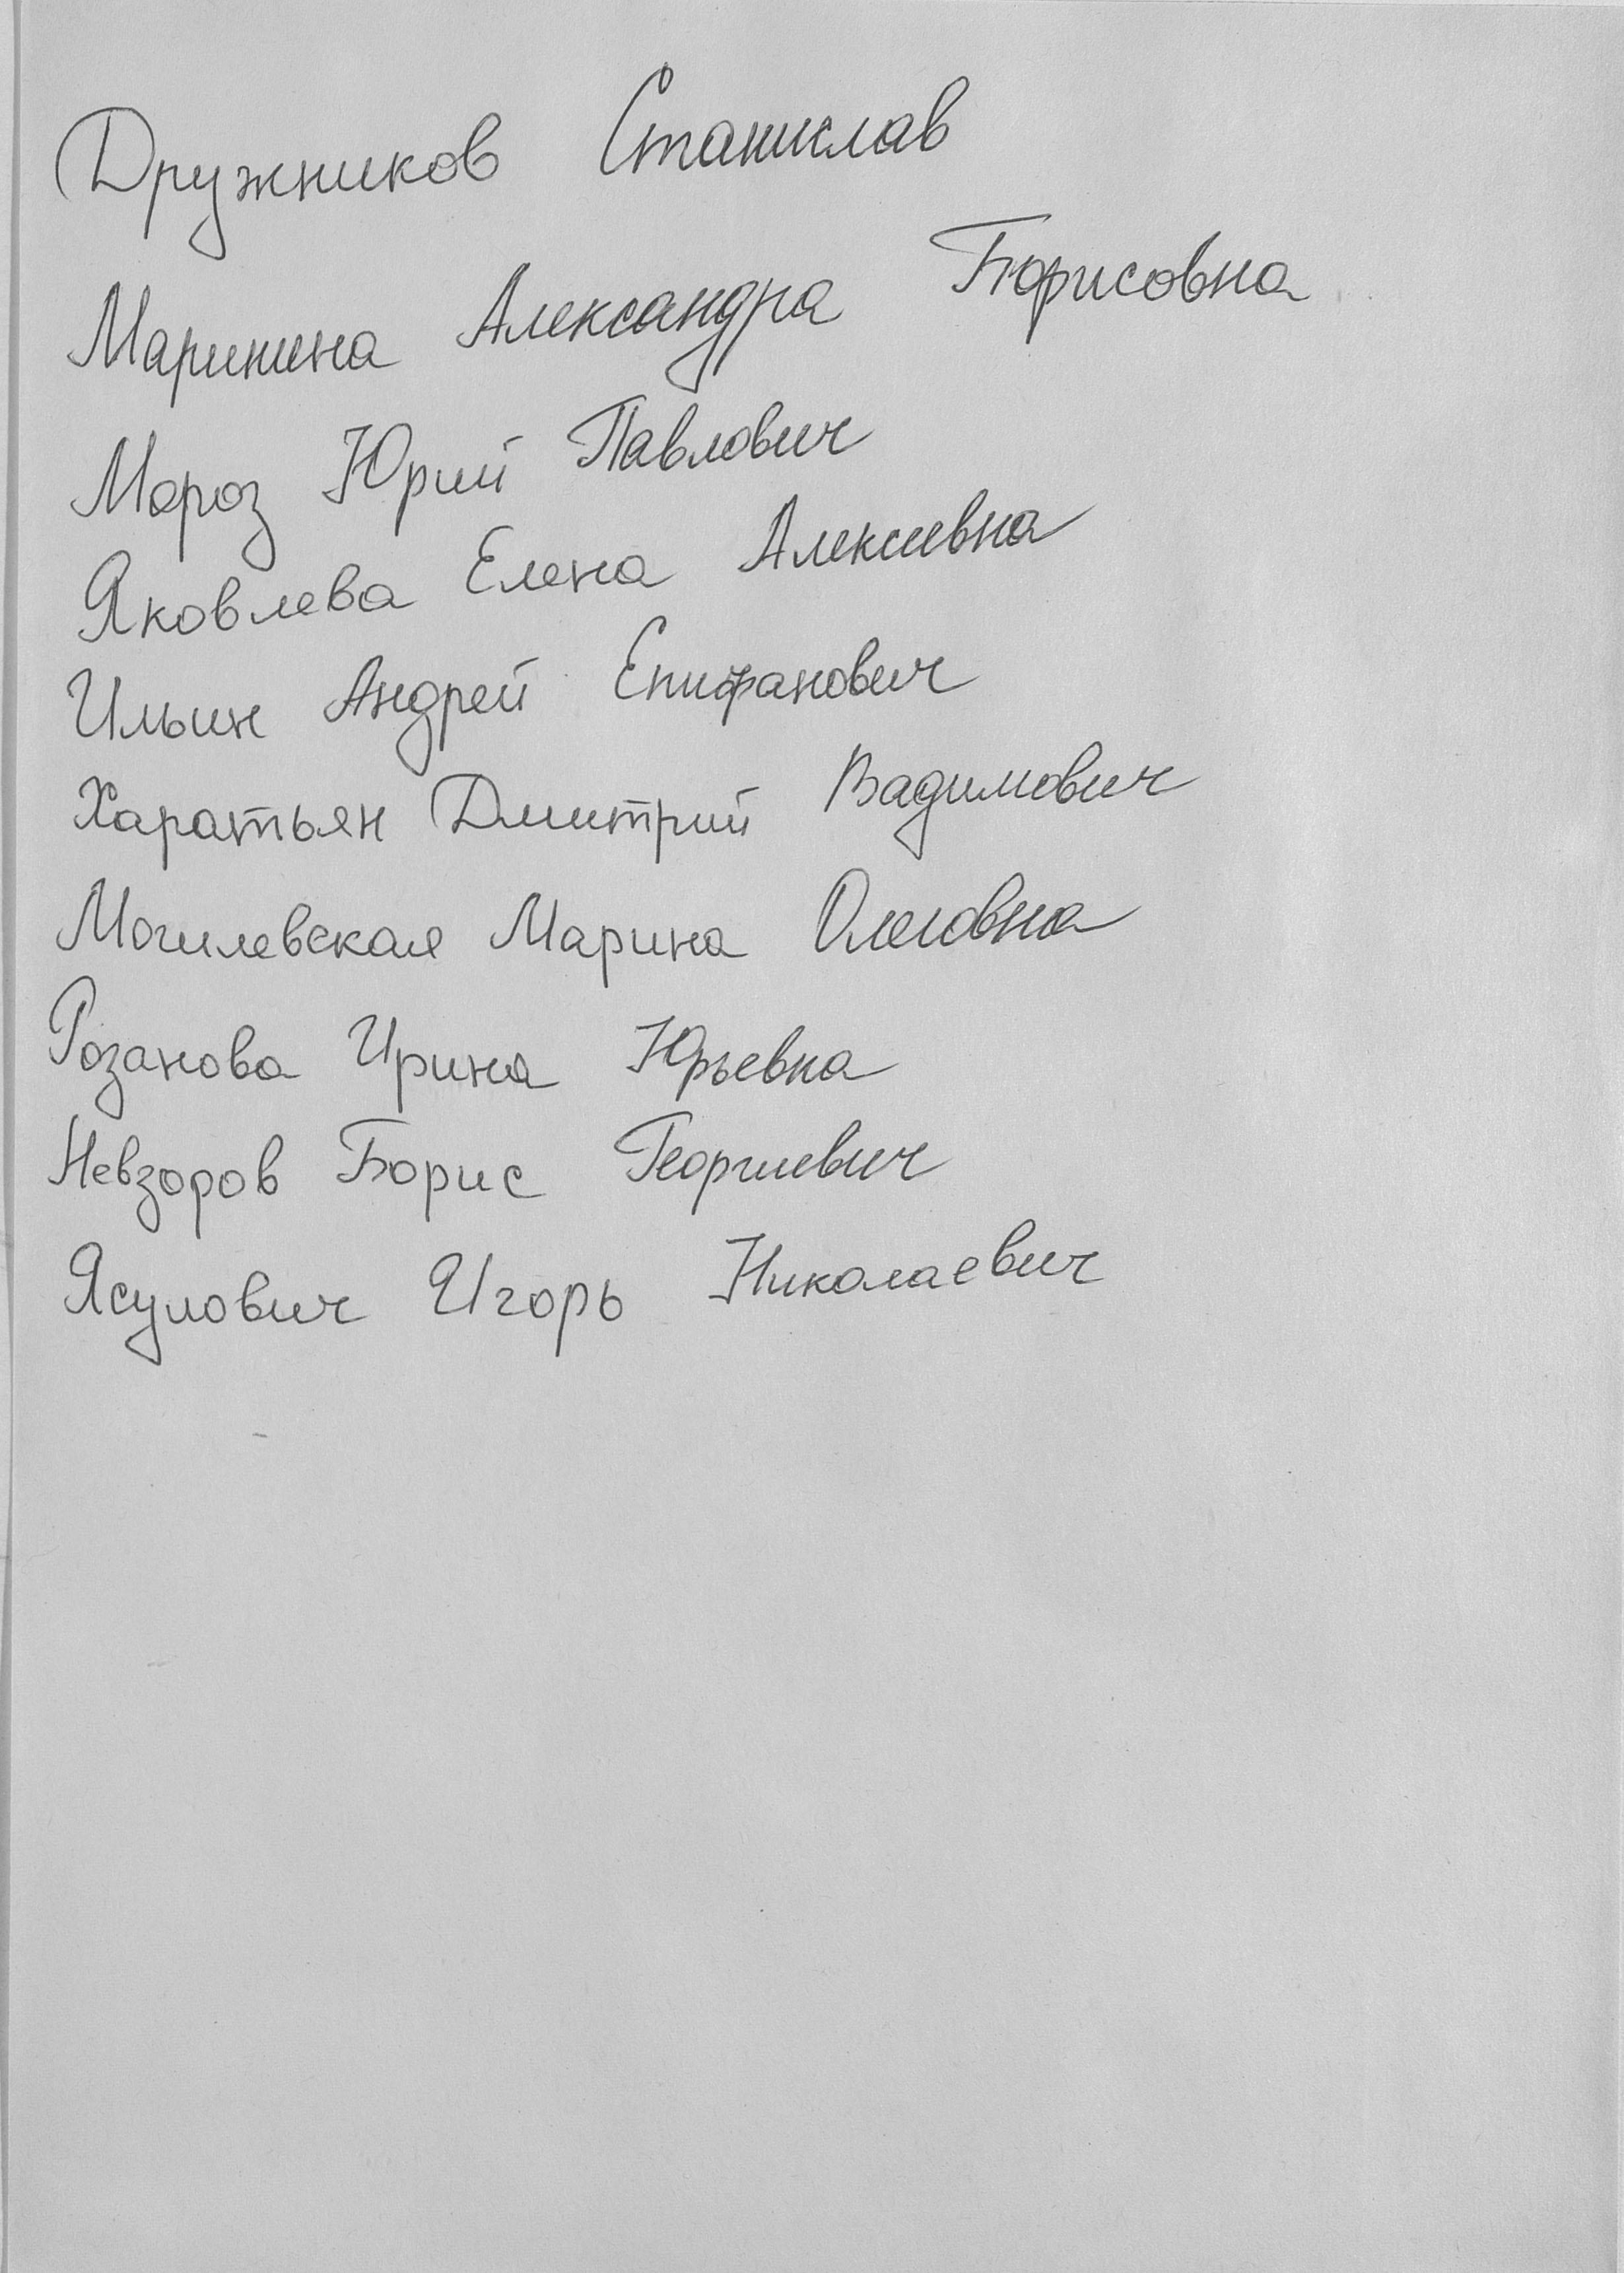 Дружников Станислав
Маринина Александра Борисовна
Мороз Юрий Павлович
Яковлева Елена Алексеевна
Ильин Андрей Епифанович
Харатьян Дмитрий Вадимович
Могилевская Марина Олеговна
Розанова Ирина Юрьевна
Невзоров Борис Георгиевич
Ясулович Игорь Николаевич